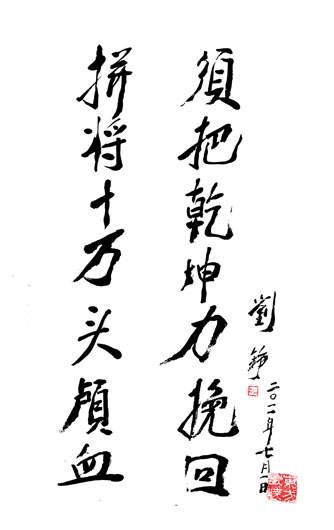 拼将十万头颅血
須把乾坤力挽回
劉
二〇一一年七月一日